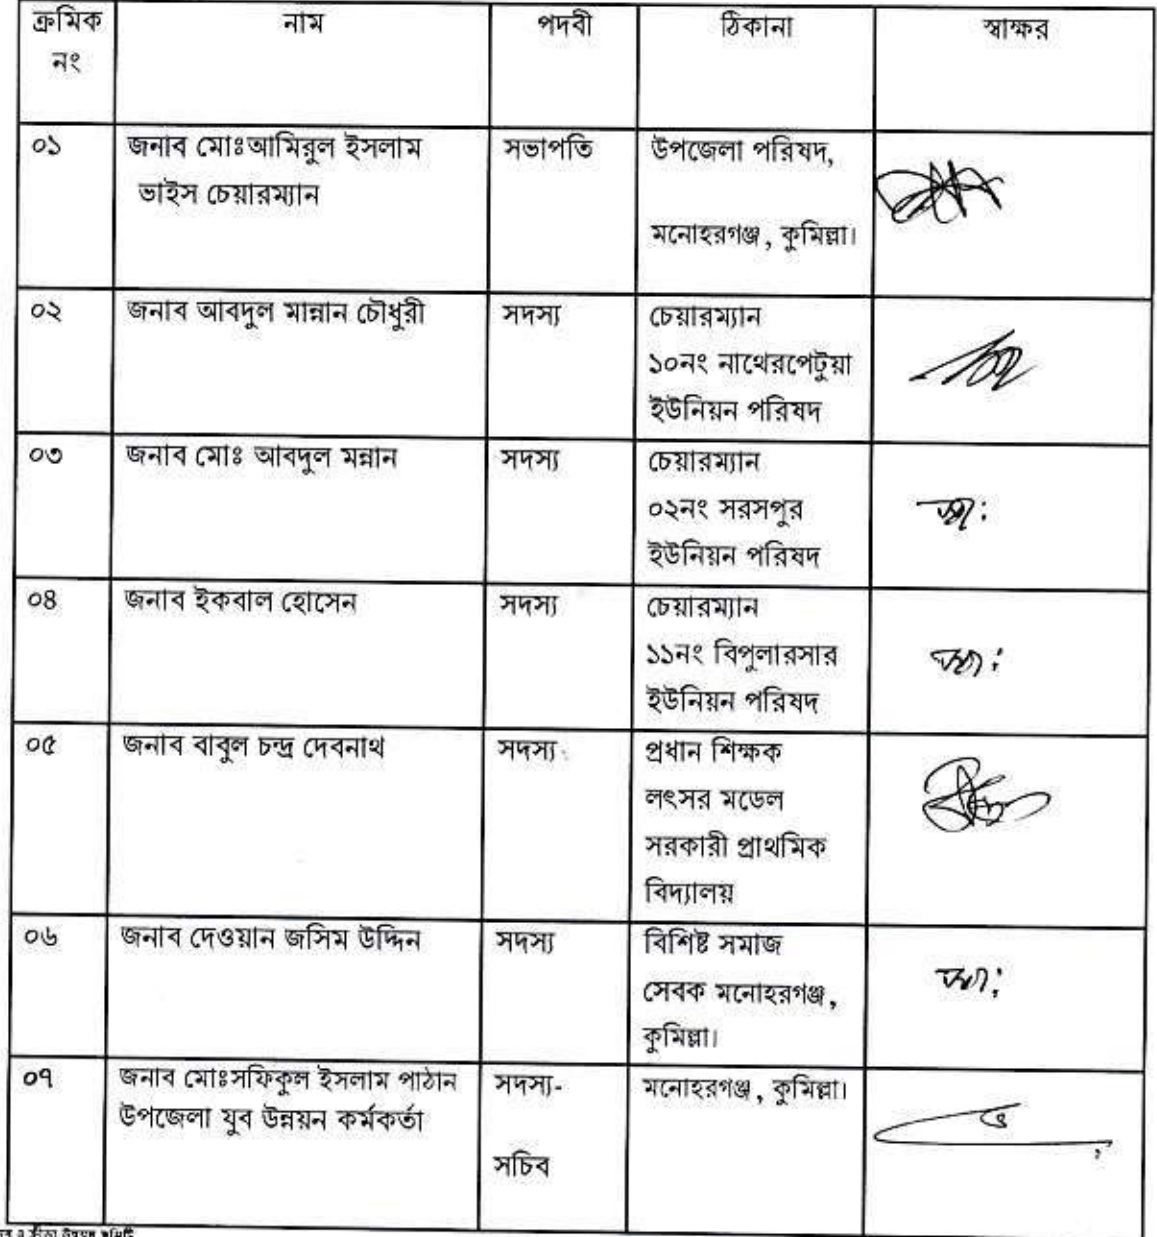 ক্রমিক নং নাম পদবী ঠিকানা স্বাক্ষর
০১ জনাব মোঃআমিরুল ইসলাম সভাপতি উপজেলা পরিষদ,
ভাইস চেয়ারম্যান
মনোহরগঞ্জ, কুমিল্লা।
০২ জনাব আবদুল মান্নান চৌধুরী সদস্য চেয়ারম্যান
১০নং নাথেরপেটুয়া
ইউনিয়ন পরিষদ
০৩ জনাব মোঃ আবদুল মন্নান সদস্য চেয়ারম্যান
০২নং সরসপুর
ইউনিয়ন পরিষদ
০৪ জনাব ইকবাল হোসেন সদস্য চেয়ারম্যান
১১নং বিপুলারসার
ইউনিয়ন পরিষদ
০৫ জনাব বাবুল চন্দ্র দেবনাথ সদস্য প্রধান শিক্ষক
লৎসর মডেল
সরকারী প্রাথমিক
বিদ্যালয়
০৬ জনাব দেওয়ান জসিম উদ্দিন সদস্য বিশিষ্ট সমাজ
সেবক মনোহরগঞ্জ,
কুমিল্লা।
০৭ জনাব মোঃসফিকুল ইসলাম পাঠান সদস্য- মনোহরগঞ্জ, কুমিল্লা।
উপজেলা যুব উন্নয়ন কর্মকর্তা
সচিব